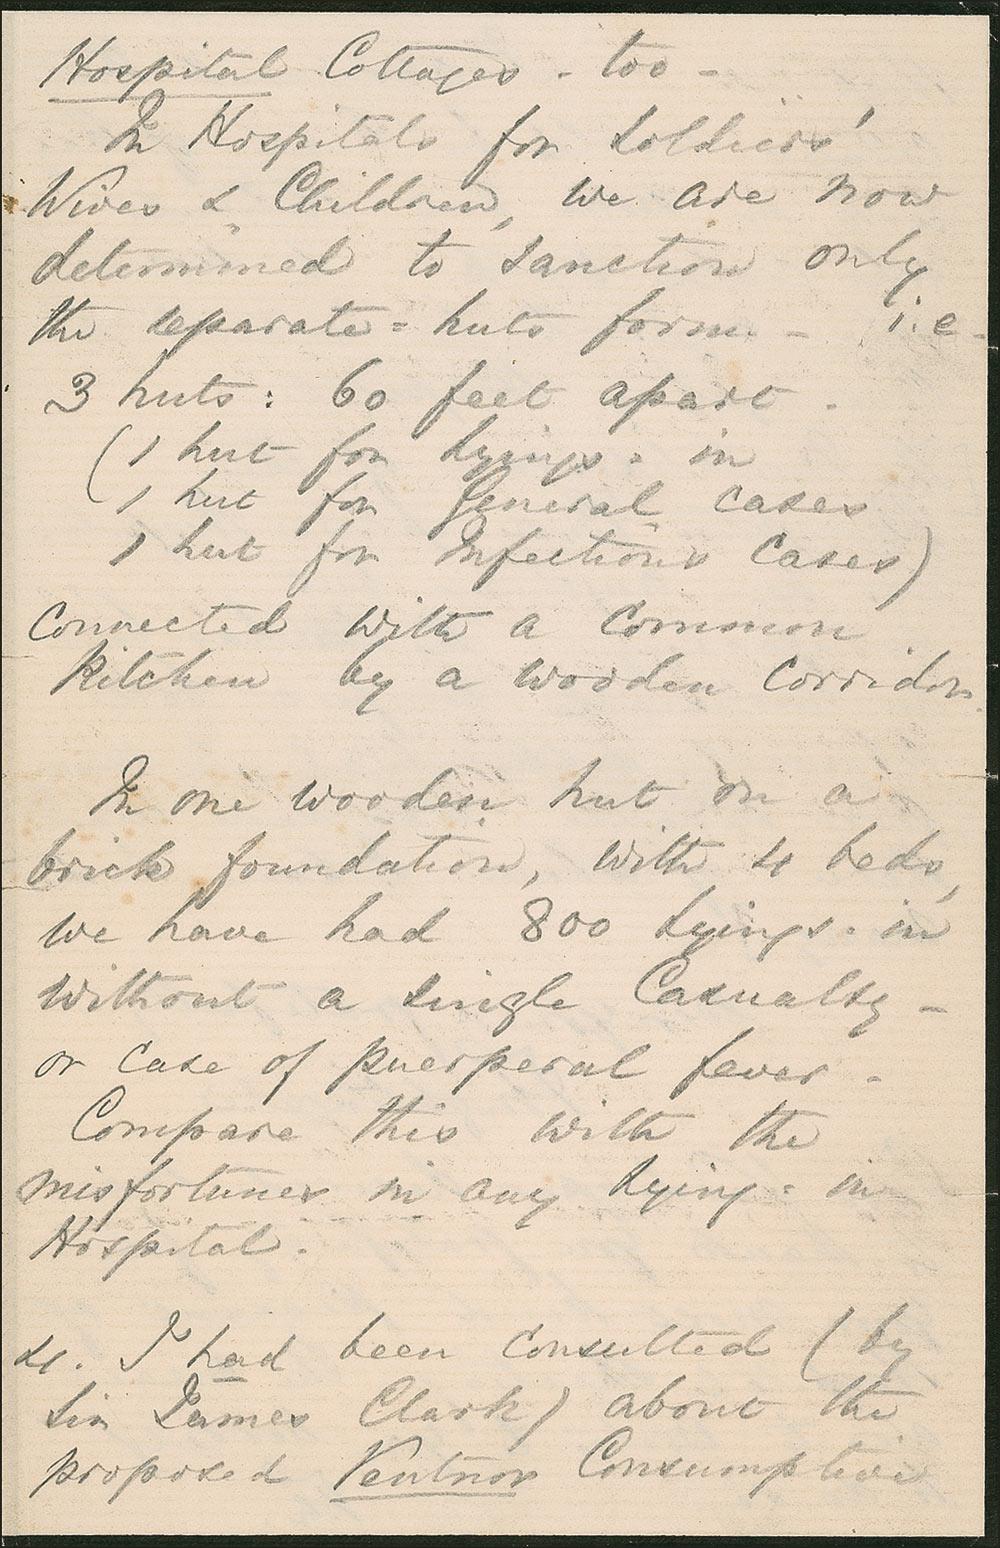 Hospital Cottages - too -
In Hospitals for Soldiers'
Wives & Children, we are now
determined to sanction only
the separate-huts form - i.e.
3 huts: 60 feet apart.
(1 hut for Lying-in
1 hut for General cases
1 hut for Infectious Cases)
connected with a common
kitchen by a wooden corridor.
In one wooden hut on a
brick foundation, with 4 beds,
we have had 800 Lyings-in
without a single Casualty -
or case of puerperal fever.
Compare this with the
misfortunes in any Lying-in
Hospital.
4. I had been consulted (by
Sir James Clark) about the
proposed Ventnor Consumptive